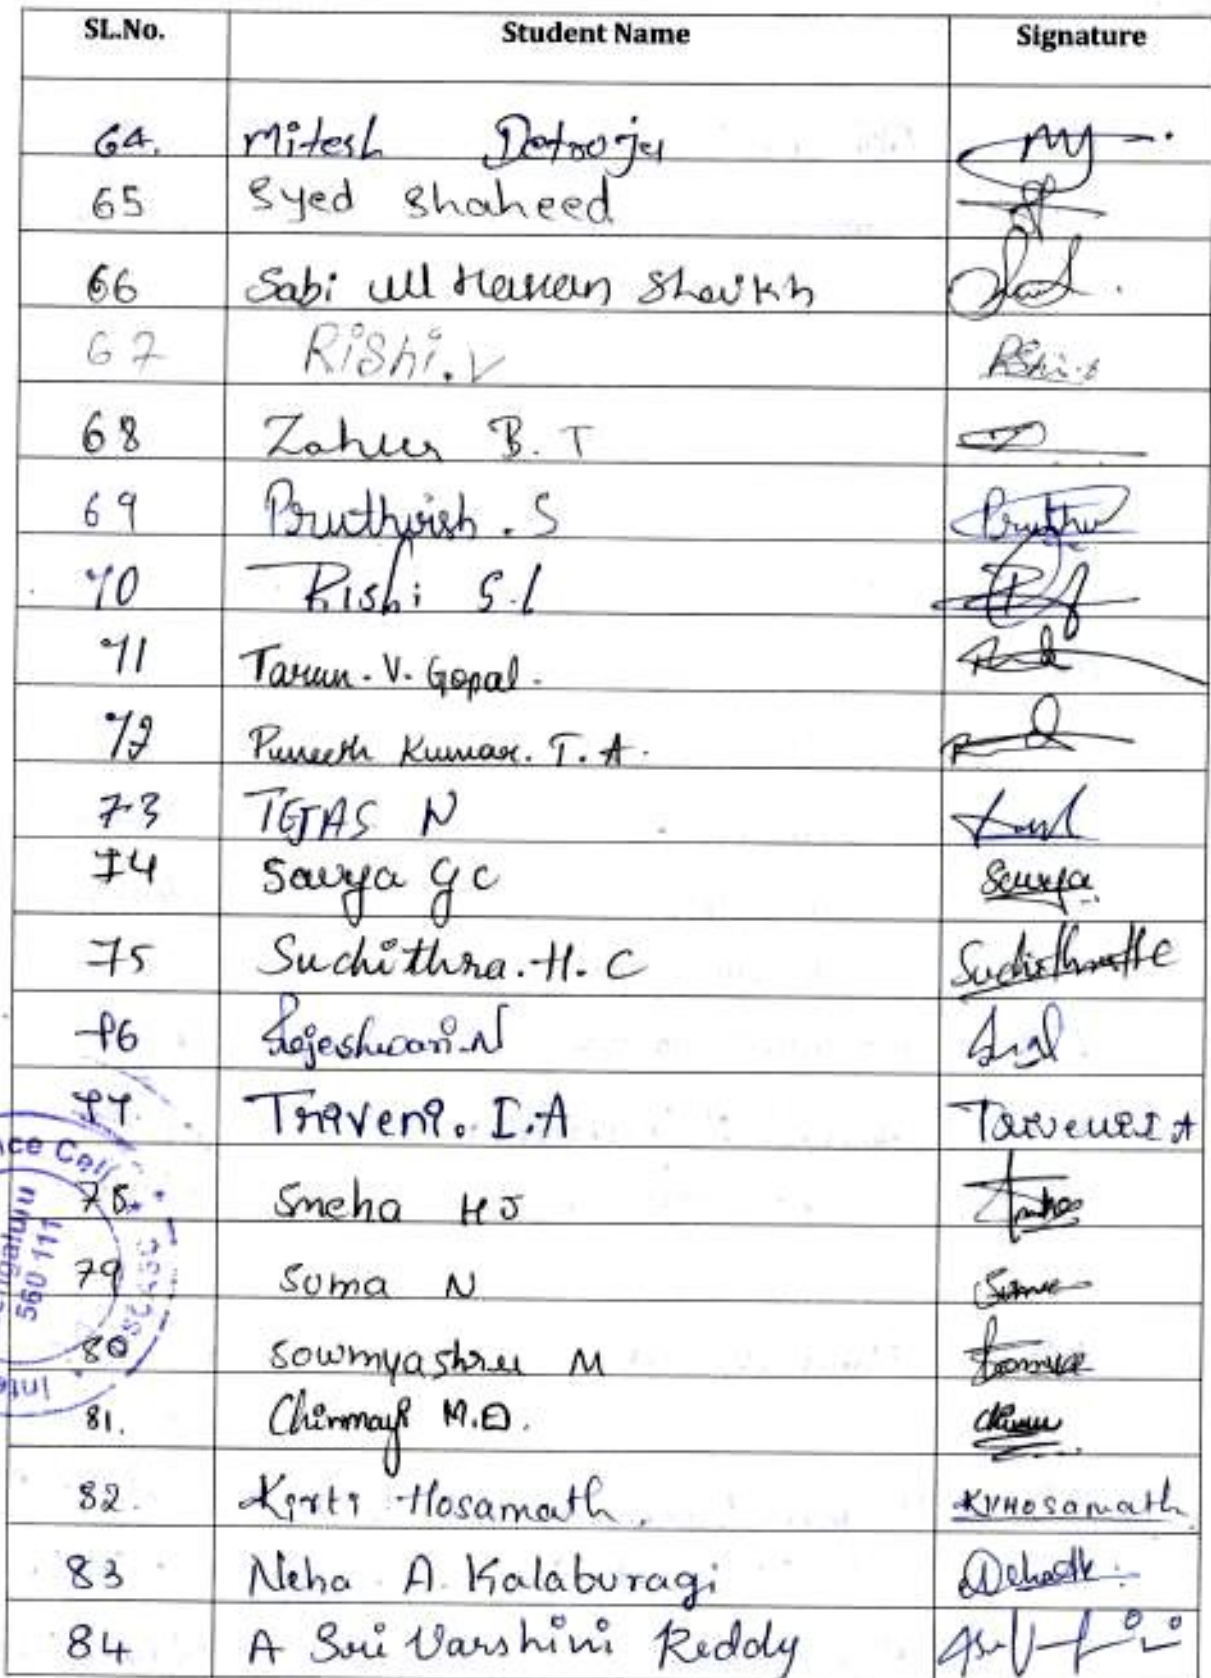 SL.No. Student Name Signature
64. Mitesh Detroja
65 Syed Shaheed
66 Sabi ull Hanan Shaikh
67 Rishi.V Rishi.V
68 Zahur B. T
69 Pruthvish . S Pruthvi
70 Rishi S.L
71 Tarun. V. Gopal.
72 Puneeth Kumar. T. A.
73 TEJAS N
74 Savya G C Savya
75 Suchithra. H. C SuchithraHC
76 Rajeshwari.N
77. Triveni. I.A Triveni I A
78. Sneha HJ Sneha
79 Suma N Suma
80 Sowmyashree M Sowmya
81. Chinmayi M.D. Chinmayi
82. Kirti Hosamath. KVHosamath
83 Neha A. Kalaburagi NehaAK
84 A Sri Varshini Reddy
ce Cell
560 111